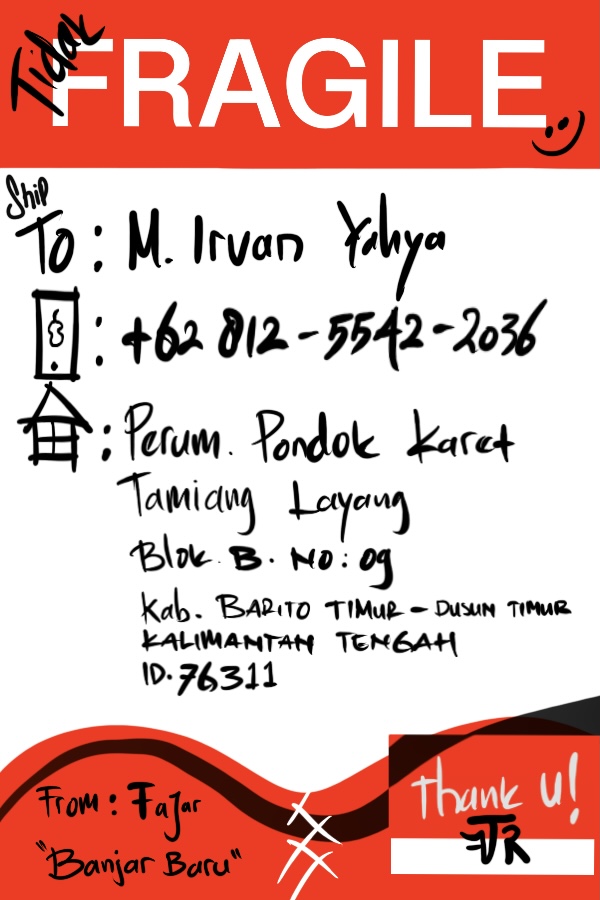 Tidak
FRAGILE
Ship
To : M. Irvan Yahya
: +62 812-5542-2036
: Perum. Pondok Karet
Tamiang Layang
Blok B. No: 09
Kab. BARITO TIMUR - DUSUN TIMUR
KALIMANTAN TENGAH
ID. 76311
From : Fajar
"Banjar Baru"
Thank u!
FJR